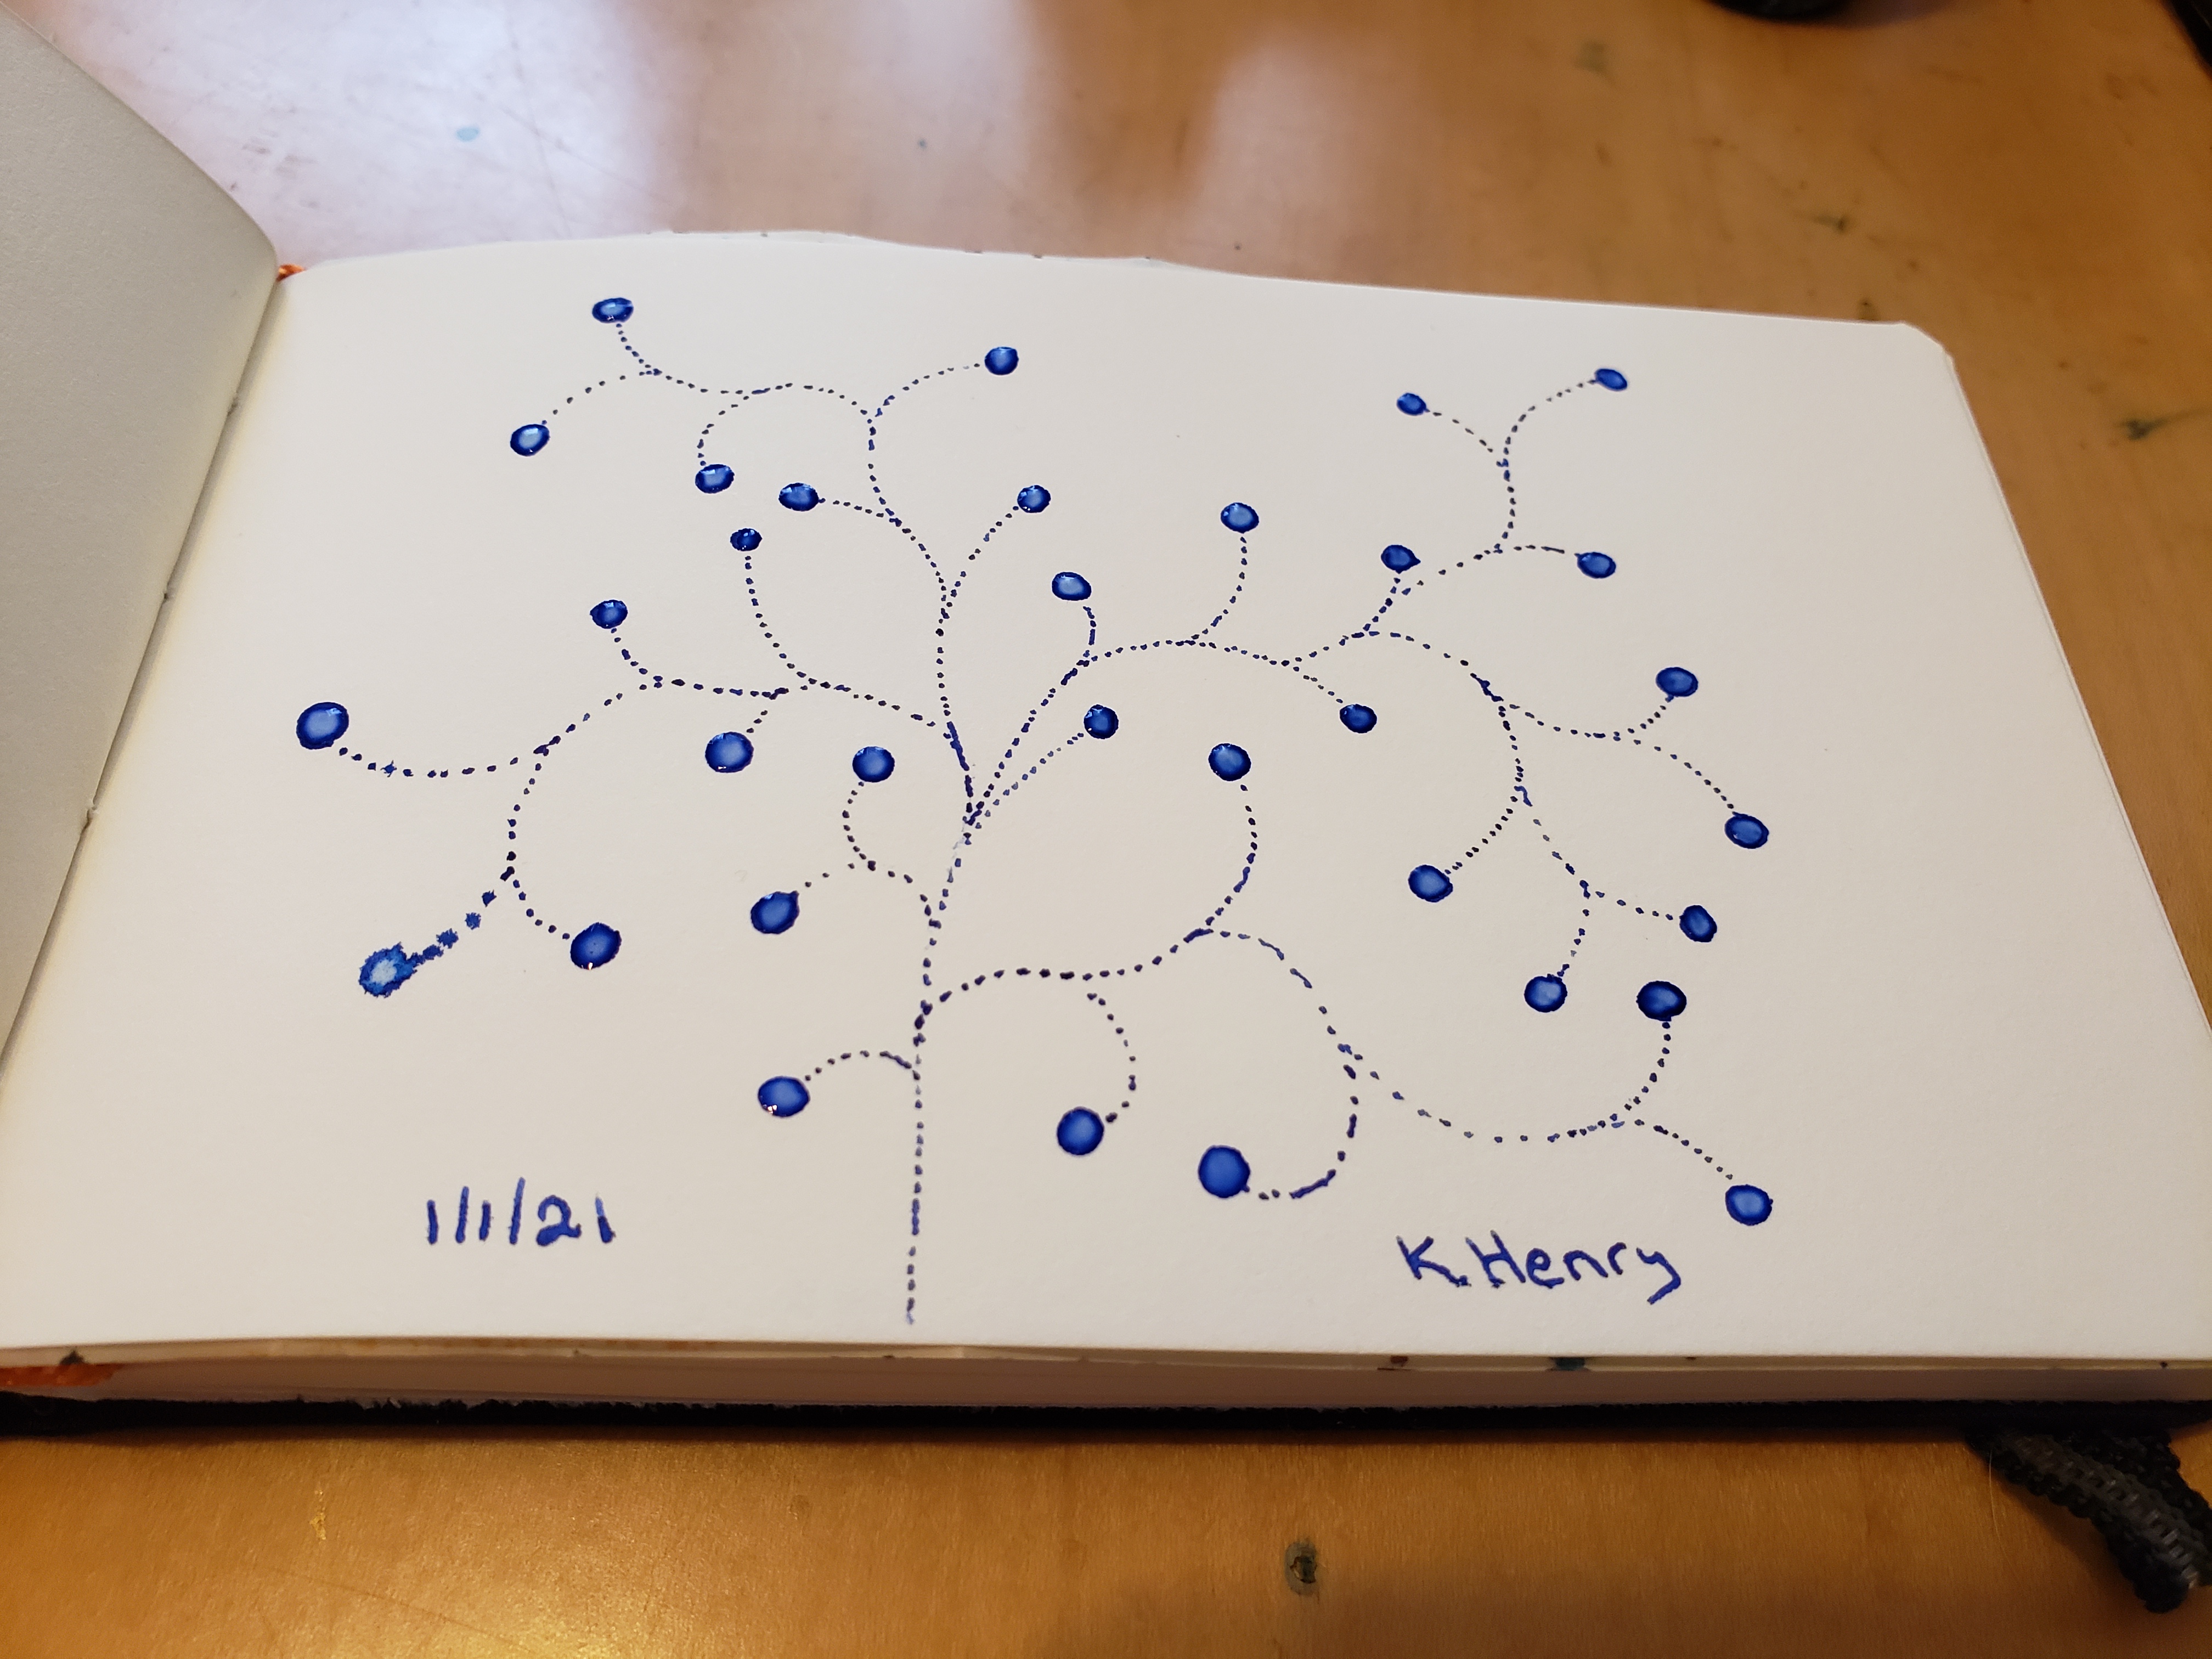 1/1/21
K. Henry